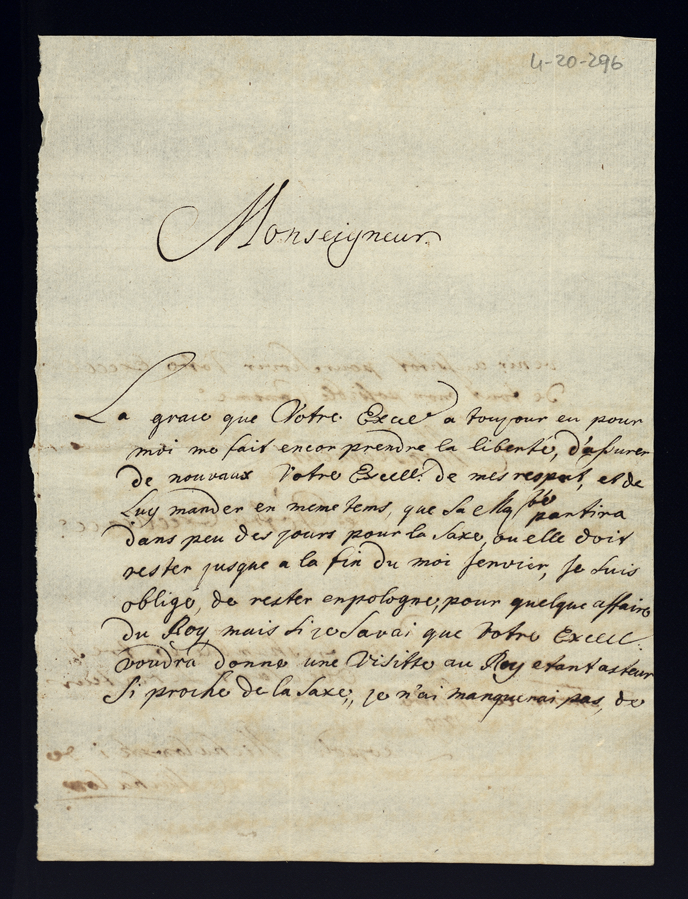 4-20-296
Monseigneur
La grace que Votre Excell. a toujour eu pour
moi me fait encor prendre la liberté, d'assurer
de nouvaux Votre Excell. de mes respect, et de
Luy mander en meme tems, que Sa Maj.té partira
dans peu des jours pour la Saxe, ou elle doit
rester jusque a la fin du moi Jenvier, Je suis
obligé, de rester en pologne, pour quelque affaire
du Roy mais si je savai que Votre Excell.
voudra donne une Visitte au Roy etant asteur
Si proche de la Saxe, je n'ai manquerai pas, de